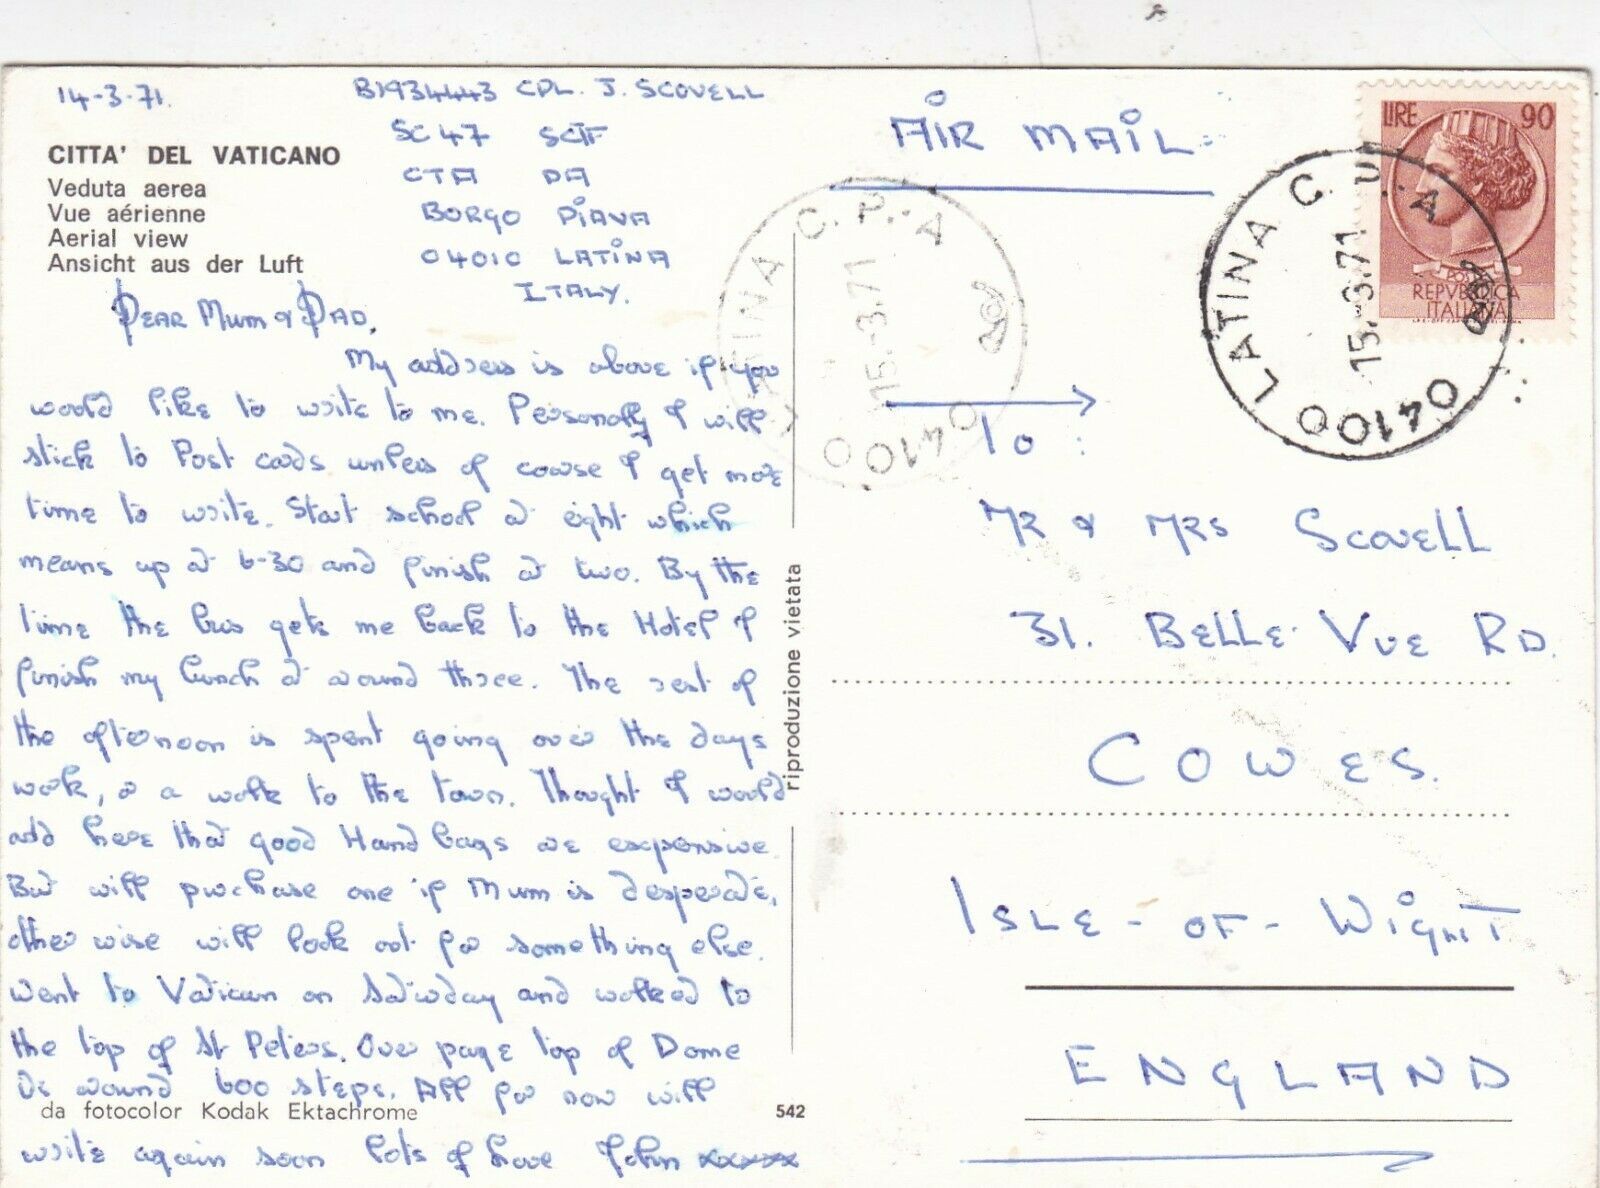 14-3-71.
B1934443 CPL. J. SCOVELL
SC47 SCTF
CTA DA
BORGO PIAVA
04010 LATINA
ITALY.
CITTA' DEL VATICANO
Veduta aerea
Vue aérienne
Aerial view
Ansicht aus der Luft
DEAR MUM & DAD,
My address is above if you
would like to write to me. Personally I will
stick to Post cards unless of course I get more
time to write. Start school at eight which
means up at 6-30 and finish at two. By the
time the bus gets me back to the Hotel I
finish my lunch at around three. The rest of
the afternoon is spent going over the days
work, or a walk to the town. Thought I would
add here that good Hand bags are expensive.
But will purchase one if Mum is desperate,
other wise will look out for something else.
Went to Vatican on Saturday and walked to
the top of St Peters. Over page top of Dome
is around 600 steps. All for now will
da fotocolor Kodak Ektachrome
542
write again soon lots of love John xxxxx
riproduzione vietata
AIR MAIL
LIRE 90
POSTE
REPVBBLICA
ITALIANA
LATINA C. P. - A
15.-3.71
04100
LATINA C. P. - A
15.-3.71
04100
To:
MR & MRS SCOVELL
31. BELLE VUE RD.
COWES.
ISLE-OF-WIGHT
ENGLAND